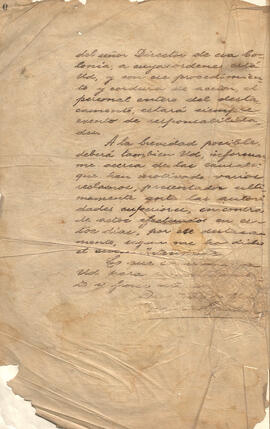 del señor Director de esa Co-
lonia, a cuyas ordenes está
Ud, y con ese procedimien-
to y cordura de acción, el
personal entero del desta-
camento, estará siempre
exento de responsabilida-
des.
A la brevedad posible,
deberá tambien Ud, informar-
me acerca de las causales
que han motivado varios
reclamos, presentados ulti-
mamente ante las autori-
dades superiores, en contra
de actos efectuados en es-
tos dias, por ese destaca-
mento, segun me ha dicho
el
Es que
Ud para
D. y fines